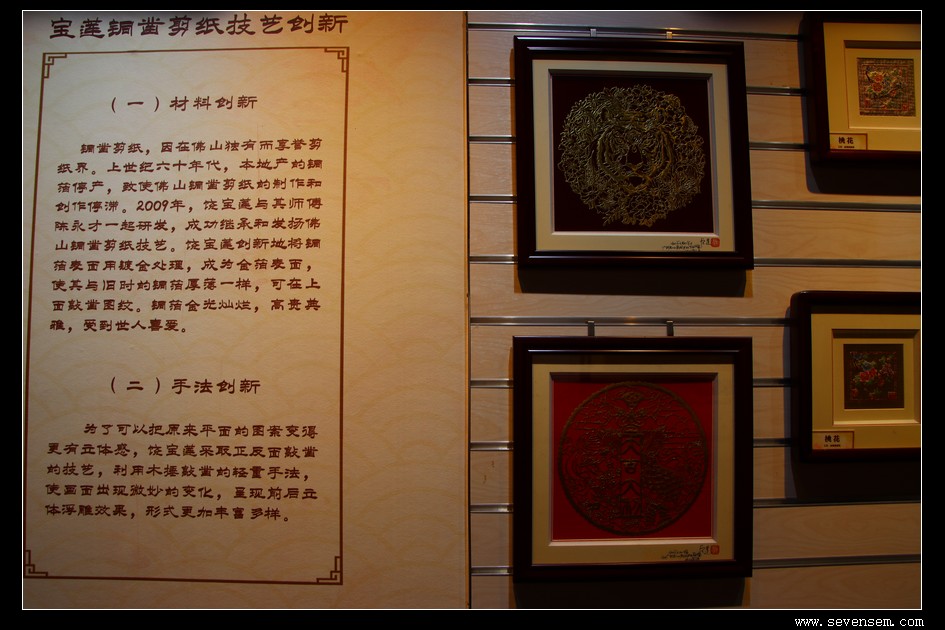 宝莲铜凿剪纸技艺创新
（一）材料创新
铜凿剪纸，因在佛山独有而享誉剪
纸界。上世纪六十年代，本地产的铜
箔停产，致使佛山铜凿剪纸的制作和
创作停滞。2009年，饶宝莲与其师傅
陈永才一起研发，成功继承和发扬佛
山铜凿剪纸技艺。饶宝莲创新地将铜
箔表面用镀金处理，成为金箔表面，
使其与旧时的铜箔厚薄一样，可在上
面敲凿图纹。铜箔金光灿烂，高贵典
雅，受到世人喜爱。
（二）手法创新
为了可以把原来平面的图案变得
更有立体感，饶宝莲采取正反面敲凿
的技艺，利用木捶敲凿的轻重手法，
使画面出现微妙的变化，呈现前后立
体浮雕效果，形式更加丰富多样。
桃花
桃花
www.sevensem.com